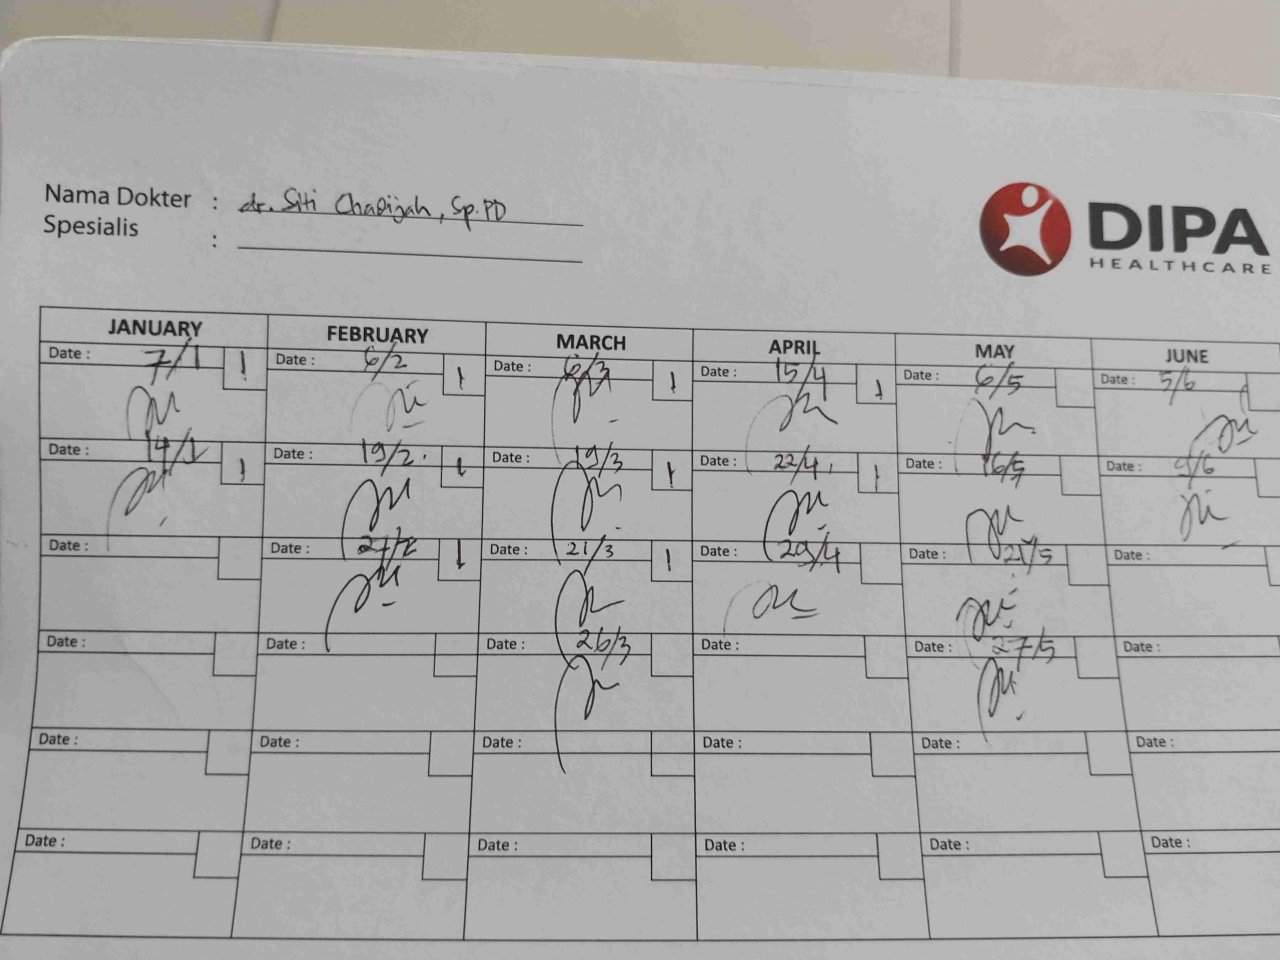 Nama Dokter : dr. Siti Chadijah, Sp.PD
Spesialis :
DIPA
HEALTHCARE
JANUARY FEBRUARY MARCH APRIL MAY JUNE
Date : 7/1 Date : 6/2 Date : 6/3 Date : 15/4 Date : 6/5 Date : 5/6
Date : 14/1 Date : 19/2 Date : 19/3 Date : 22/4 Date : 16/5 Date :
Date : Date : Date : 21/3 Date : 29/4 Date : Date :
Date : Date : Date : 26/3 Date : Date : 27/5 Date :
Date : Date : Date : Date : Date : Date :
Date : Date : Date : Date : Date : Date :